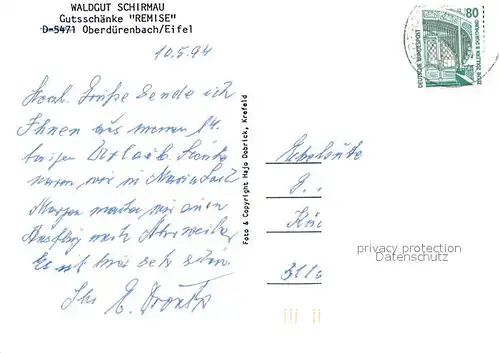 WALDGUT SCHIRMAU
Gutsschänke "REMISE"
D-5471 Oberdürenbach/Eifel
10.5.94
Herzl. Grüße sende ich
Ihnen aus meinem 14
tägigen Urlaub. Heute
waren wir in Maria Laach
Morgen machen wir einen
Ausflug nach Ahrweiler
Es ist hier sehr schön.
Ihr E.
Foto & Copyright Hajo Dobrick, Krefeld
80
DEUTSCHE BUNDESPOST
privacy protection
Datenschutz